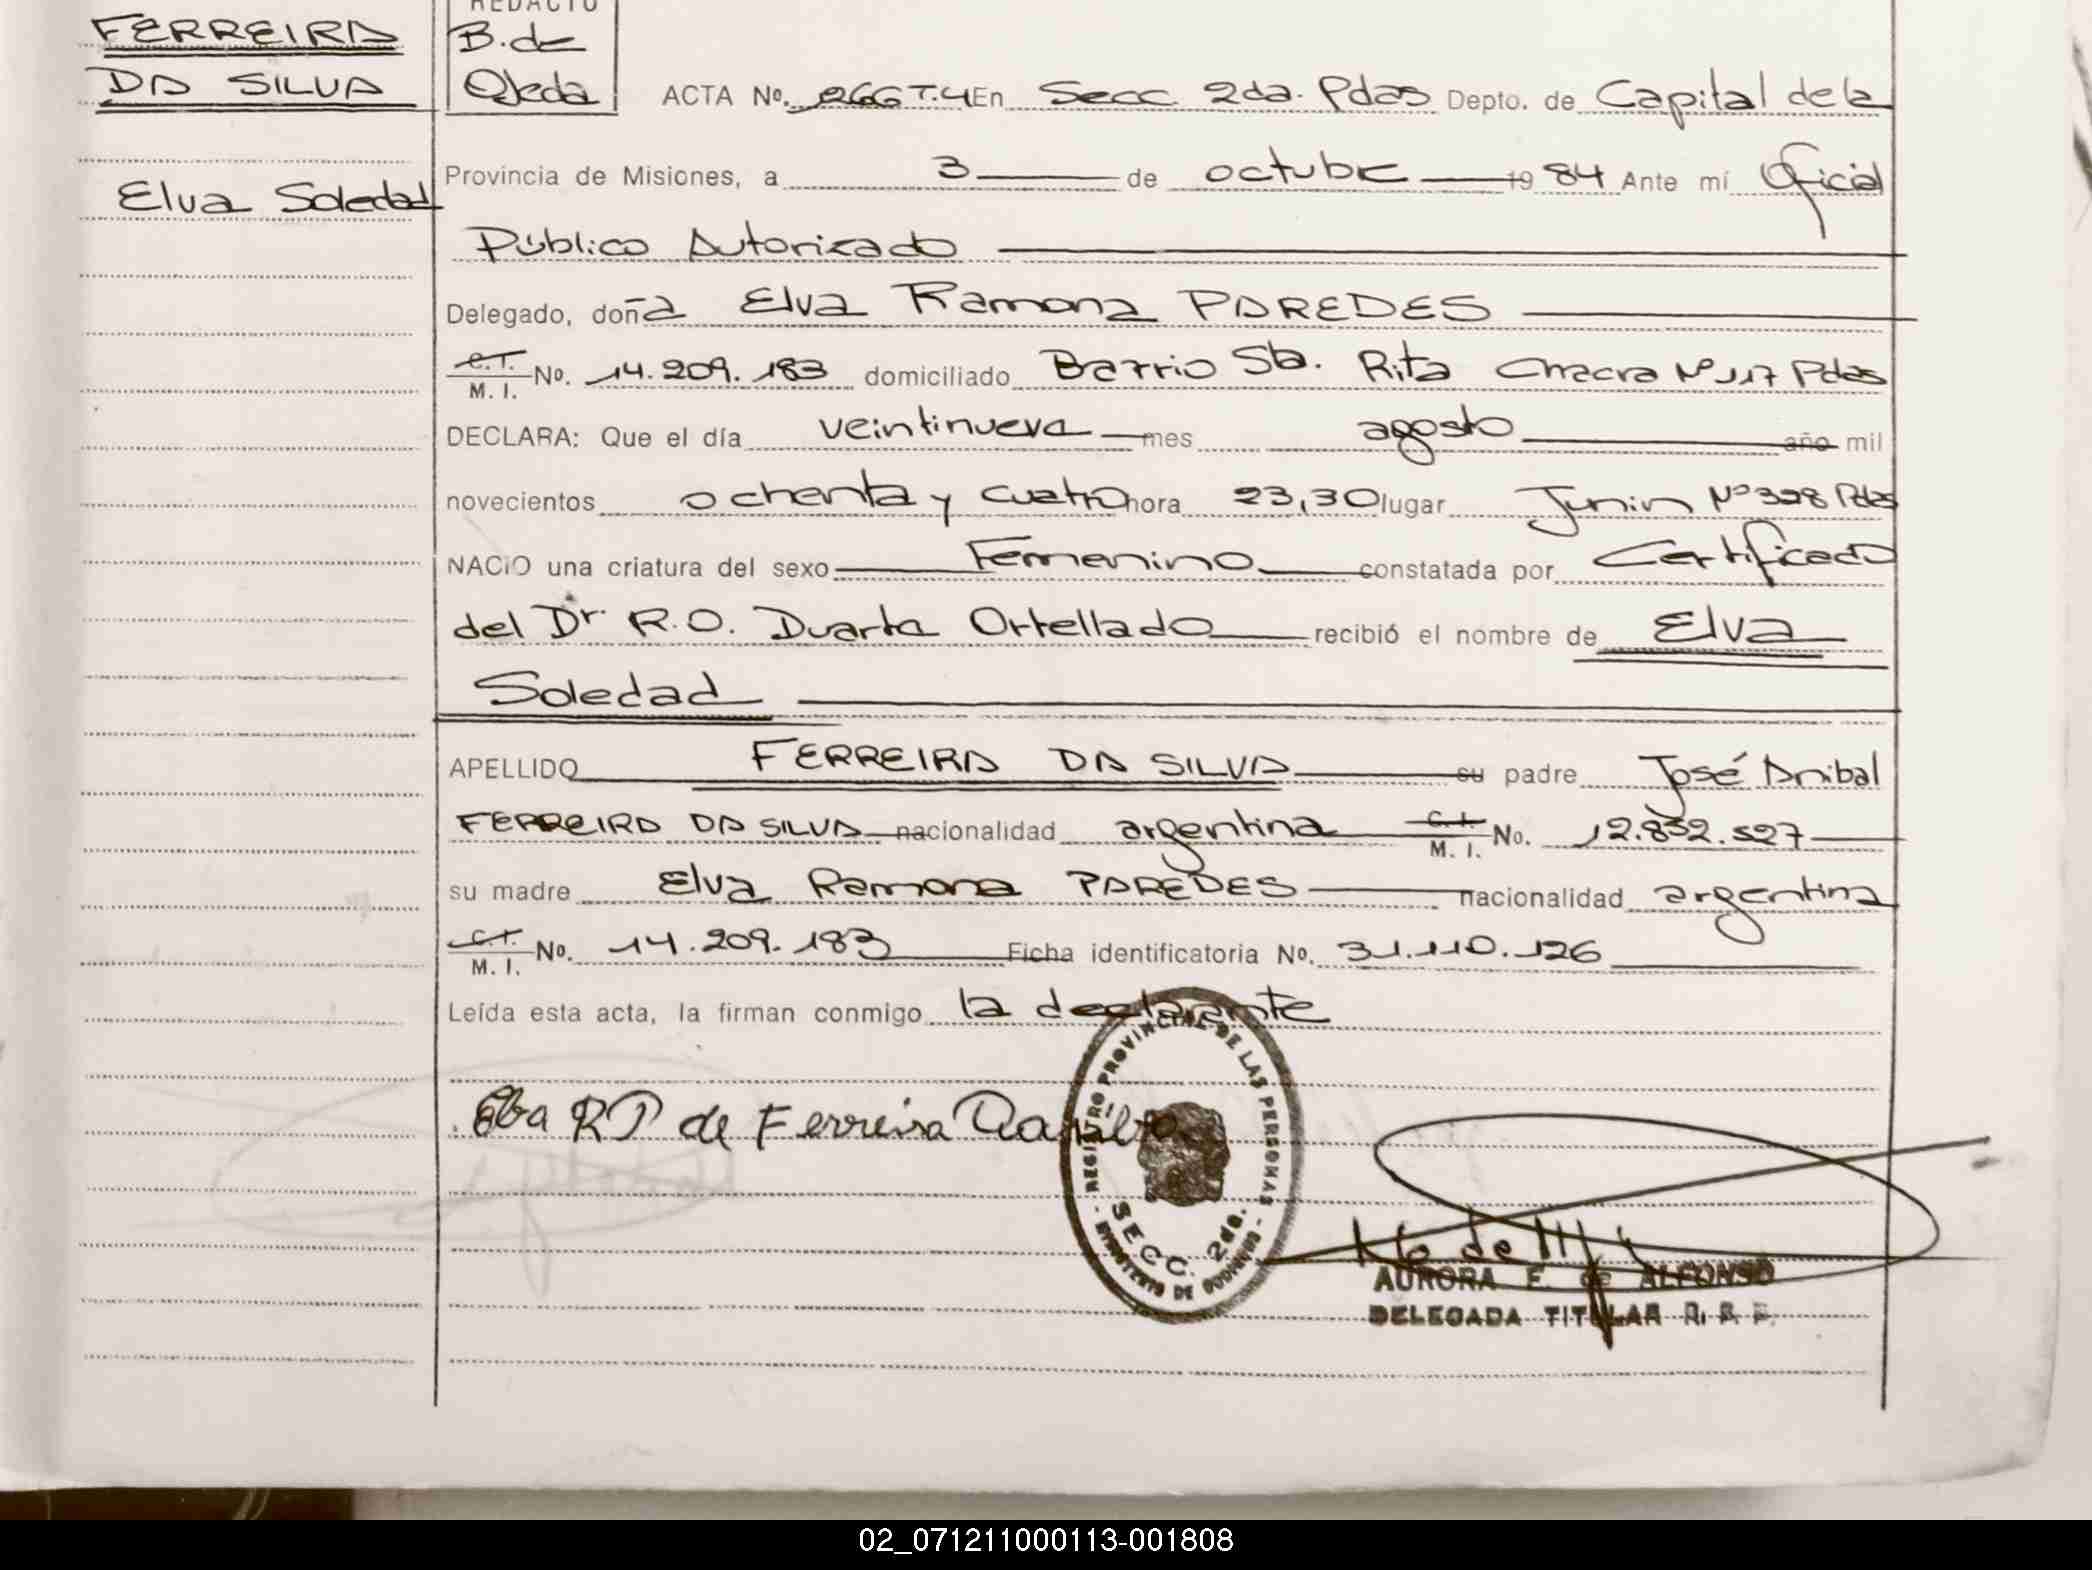 FERREIRA
DA SILVA
Elva Soledad
REDACTO
B. de
Ojeda
ACTA No. 266 T.4 En Secc. 2da. Pdas Depto. de Capital de la
Provincia de Misiones, a 3 de octubre 1984 Ante mí Oficial
Público Autorizado
Delegado, doña Elva Ramona PAREDES
C.I. M. I. No. 14.209.183 domiciliado Barrio Sta. Rita Chacra Nº 117 Pdas
DECLARA: Que el día veintinueve mes agosto año mil
novecientos ochenta y cuatro hora 23,30 lugar Junin Nº 328 Pdas
NACIO una criatura del sexo Femenino constatada por Certificado
del Dr. R.O. Duarte Ortellado recibió el nombre de Elva
Soledad
APELLIDO FERREIRA DA SILVA su padre José Anibal
FERREIRA DA SILVA nacionalidad argentina C.I. M. I. No. 12.852.527
su madre Elva Ramona PAREDES nacionalidad argentina
C.I. M. I. No. 14.209.183 Ficha identificatoria No. 31.110.126
Leída esta acta, la firman conmigo la declarante
Elva R P de Ferreira Da Silva
REGISTRO PROVINCIAL DE LAS PERSONAS
SECC. 2da.
MINISTERIO DE GOBIERNO
AURORA F. de ALFONSO
DELEGADA TITULAR R. P. P.
02_071211000113-001808